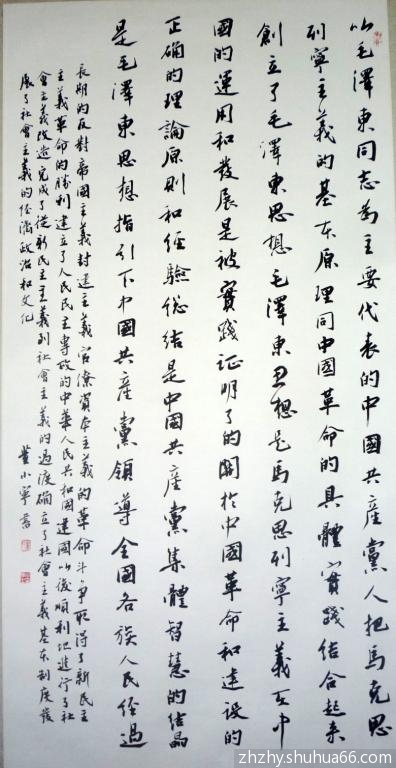 以毛澤東同志为主要代表的中國共産黨人把馬克思
列寧主義的基本原理同中國革命的具體實踐结合起来
創立了毛澤東思想毛澤東思想是馬克思列寧主義在中
國的運用和發展是被實踐证明了的關於中國革命和建設的
正确的理論原則和经驗总结是中國共産黨集體智慧的结晶
是毛澤東思想指引下中國共産黨領導全國各族人民经過
長期的反對帝國主義封建主義官僚資本主義的革命斗争取得了新民主
主義革命的勝利建立了人民民主專政的中華人民共和國建國以後順利地進行了社
會主義改造完成了從新民主主義到社會主義的過渡确立了社會主義基本制度發
展了社會主義的经濟政治和文化
董小寧書
zhzhy.shuhua66.com